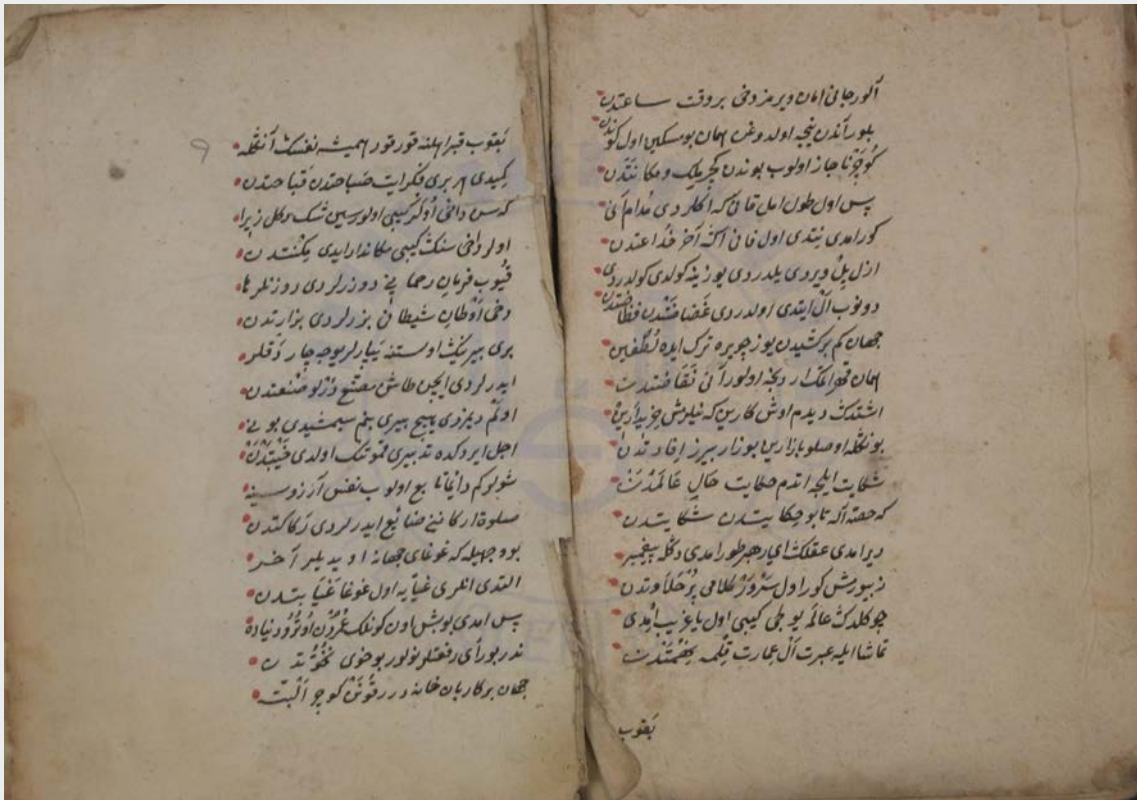 آلور جانی امان ویرمز دخی بر وقت ساعتدن
بلور آندن نیجه اولدوغن همان بو مسکین اول کوندن
کوچر ناچار اولوب بوندن کچر ملک و مکانتدن
پس اول طول امل قانی که اکلردی مدام آنی
کورامدی نیتدی اول فانی اکا آخر خداعتدن
ازل یل ویردی یلدردی یوزینه کولدی کولدردی
دونوب آل ایتدی اولدردی
جهان کم بر کشیدن یوز چویره ترک ایده لطفین
همان قهر اتمک اردنجه اولور آنی
اشتدک دیدم اوش کارین که نیلرمش خریدارین
بونکله اوصلو بازارین بوزار بیرز افادتدن
شکایت ایلیجه اتدم حکایت حال عالمدن
که حصه آله تا بو حکایتدن شکایتدن
دیرامدی عقلک ای یار هبر طورامدی دکله پیغمبر
نه بیورمش کور اول سرور کلامی پر حلاوتدن
چو کلدک عالمه یولجی کیبی اول یا غریب ایمدی
تماشا ایله عبرت آل عمارت قلمه
بقوب
بقوب قبر اهلنه قورقور همیشه نفسک آنکله
کیدی هر بری فکر ایت صباحتدن قباحتدن
که سن داخی اولر کیبی اولورسین شک دکل زیرا
اولر داخی سنک کیبی مکاندار ایدی مکنتدن
قیوب فرمان رحمانی دوزرلردی دوزنلرها
دخی اوطان شیطانی بزرلردی بزارتدن
بری بیرینک اوستنه یپارلر یوجه چارد قلر
ایدرلردی ایچن طاش مصنع درلو صنعتدن
اولم دیمزدی هیچ بیری بنم سیمشیدی بوینی
اجل ایردکده تدبیری قمونک اولدی خیبتدن
شولر کم دائما تابع اولوب نفس آرزوسینه
صلوة ارکانی ضائع ایدرلردی زکاتدن
بو وجهیله که غوغای جهانه اویدیلر آخر
التدی انلری غیایه اول غوغا غیابتدن
پس امدی بو بش اون کونلک عمردن اوترو دنیاده
ندر بو رأی رفعتلو نولور بو خوی نخوتدن
جهان بر کاربان خانه درر قونن کوچر البته